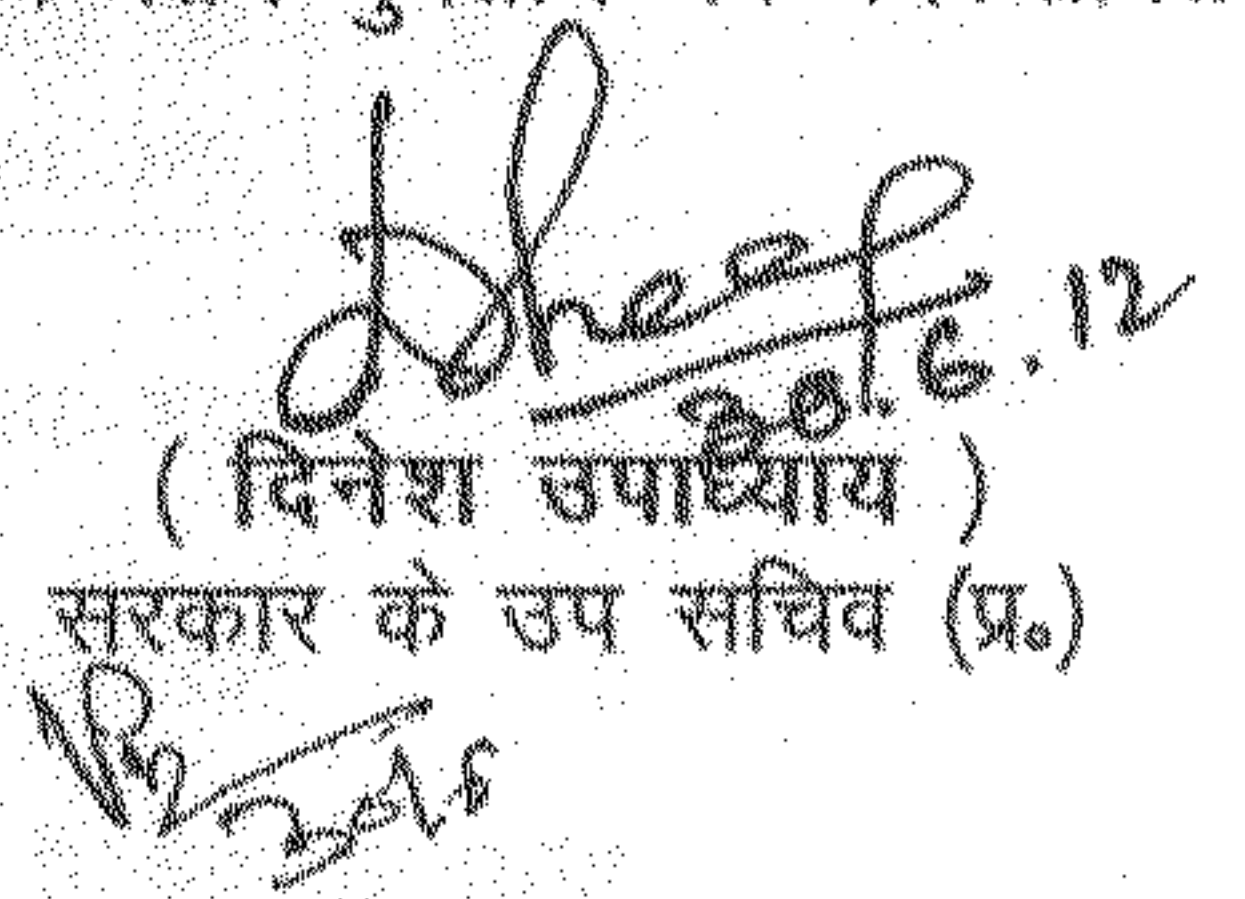 30.6.12
( दिनेश उपाध्याय )
सरकार के उप सचिव (प्र॰)